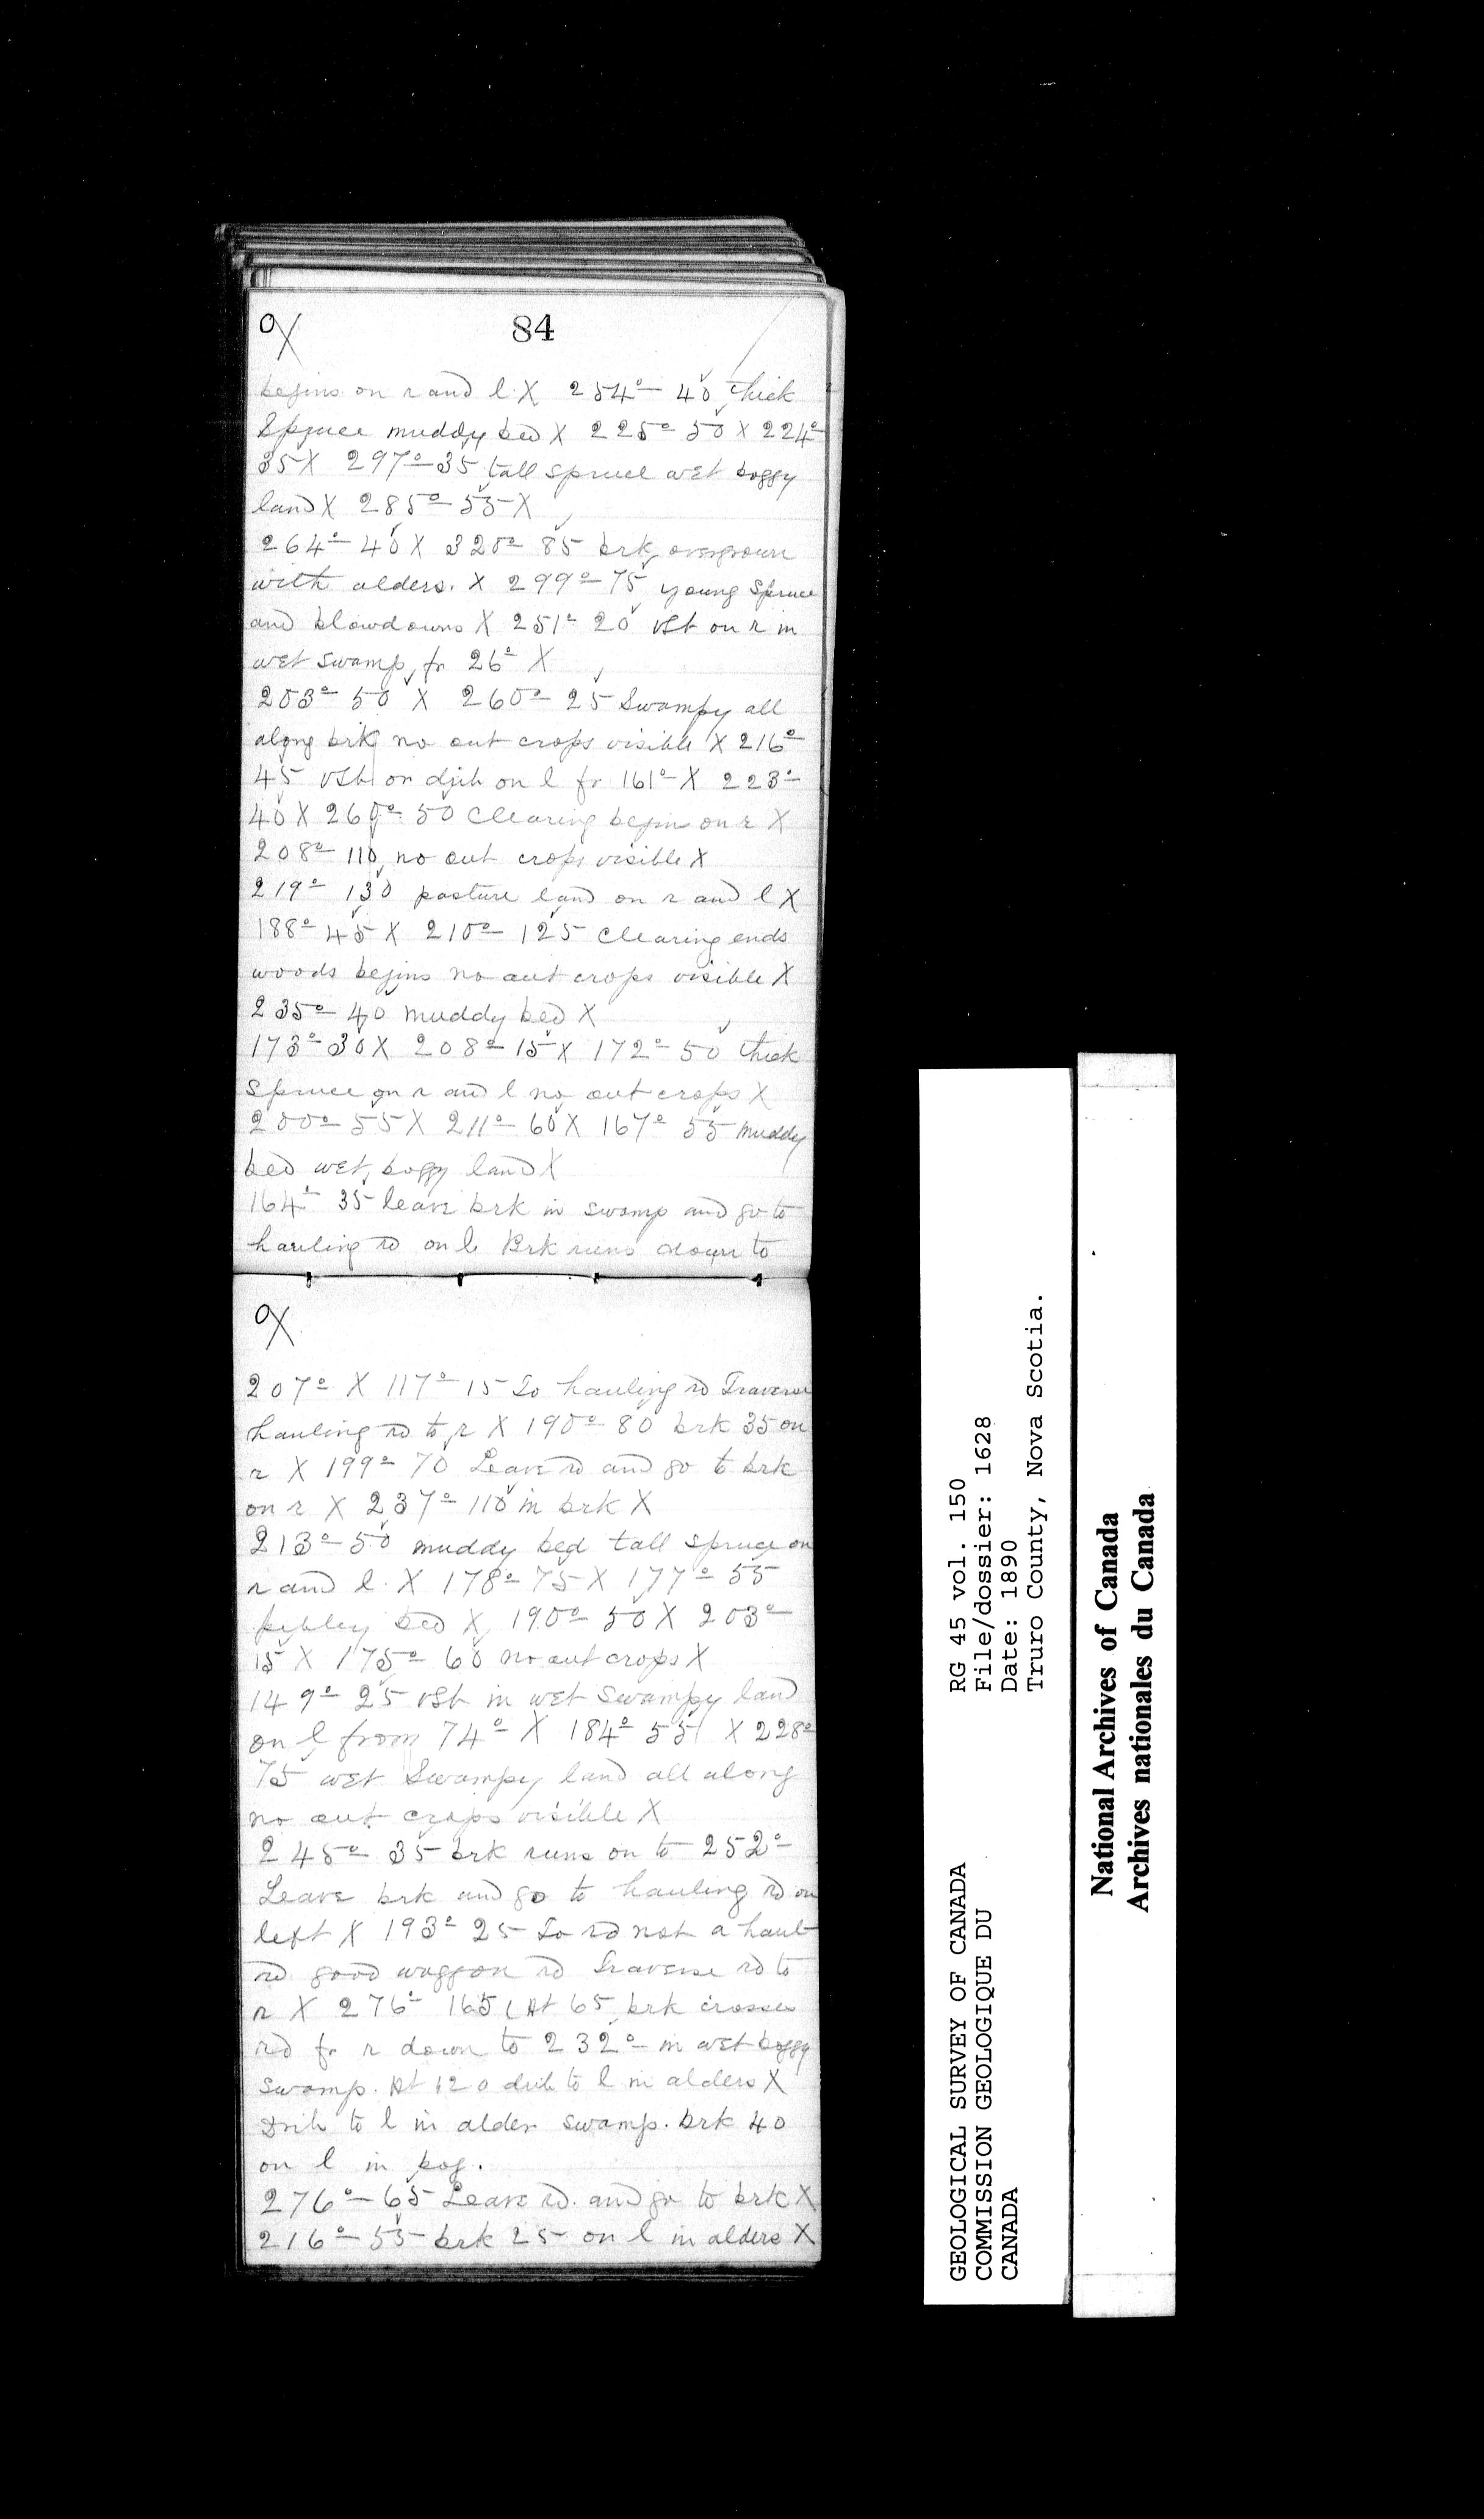 84
begins on r and l. X 254° 40 thick
Spruce muddy bed X 225° 50 X 224°
35 X 297° 35 tall spruce wet boggy
land X 285° 55 X
264° 40 X 320° 85 brk overgrown
with alders. X 299° 75 young Spruce
and blowdowns X 251° 20 vSb on r in
wet swamp, fr 26° X
203° 50 X 260° 25 Swampy all
along brk no out crops visible X 216°
45 on l fr 161° X 223°
40 X 260° 50 Clearing begins on r X
208° 110 no out crops visible X
219° 130 pasture land on r and l X
188° 45 X 210° 125 Clearing ends
woods begins no out crops visible X
235° 40 muddy bed X
173° 30 X 208° 15 X 172° 50 thick
Spruce on r and l no out crops X
200° 55 X 211° 60 X 167° 55 muddy
bed wet, boggy land X
164° 35 leave brk in swamp and go to
hauling rd on l. Brk runs down to
207° X 117° 15 To hauling rd Traverse
hauling rd to r X 190° 80 brk 35 on
r X 199° 70 Leave rd and go to brk
on r X 237° 110 in brk X
213° 50 muddy bed tall spruce on
r and l. X 178° 75 X 177° 55
pebbley bed X 190° 50 X 203°
15 X 175° 60 no out crops X
149° 25 vSb in wet Swampy land
on l from 74° X 184° 55 X 228°
75 wet Swampy land all along
no out crops visible X
245° 35 brk runs on to 252°
Leave brk and go to hauling rd on
left X 193° 25 To rd not a haul
rd good waggon rd Traverse rd to
r X 276° 165 (At 65 brk crosses
rd fr r down to 232° in wet boggy
Swamp. At 120 drib to l in alders X
Drib to l in alder swamp. brk 40
on l in bog.
276° 65 Leave rd. and go to brk X
216° 55 brk 25 on l in alders X
GEOLOGICAL SURVEY OF CANADA
COMMISSION GEOLOGIQUE DU
CANADA
RG 45 vol. 150
File/dossier: 1628
Date: 1890
Truro County, Nova Scotia.
National Archives of Canada
Archives nationales du Canada